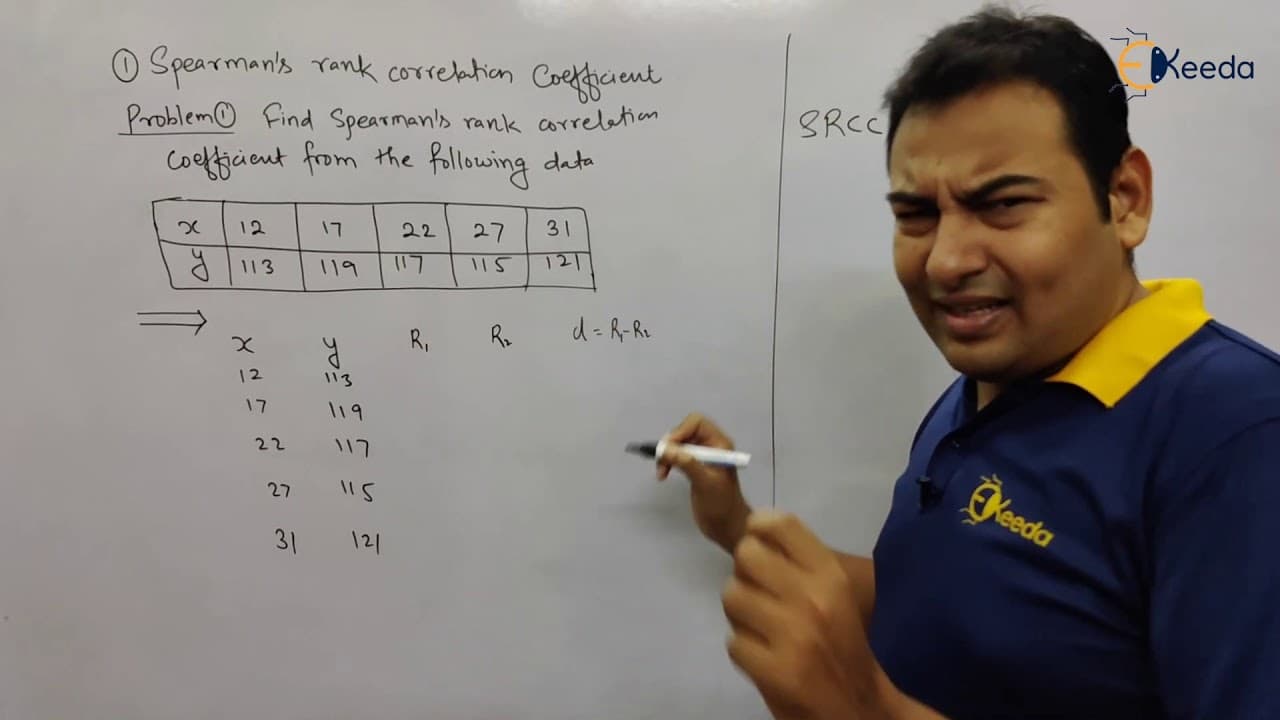 ① Spearman's rank correlation Coefficient
Problem① Find Spearman's rank correlation
Coefficient from the following data
x 12 17 22 27 31
y 113 119 117 115 121
⟹
x y R₁ R₂ d = R₁-R₂
12 113
17 119
22 117
27 115
31 121
SRCC
EKeeda
EKeeda